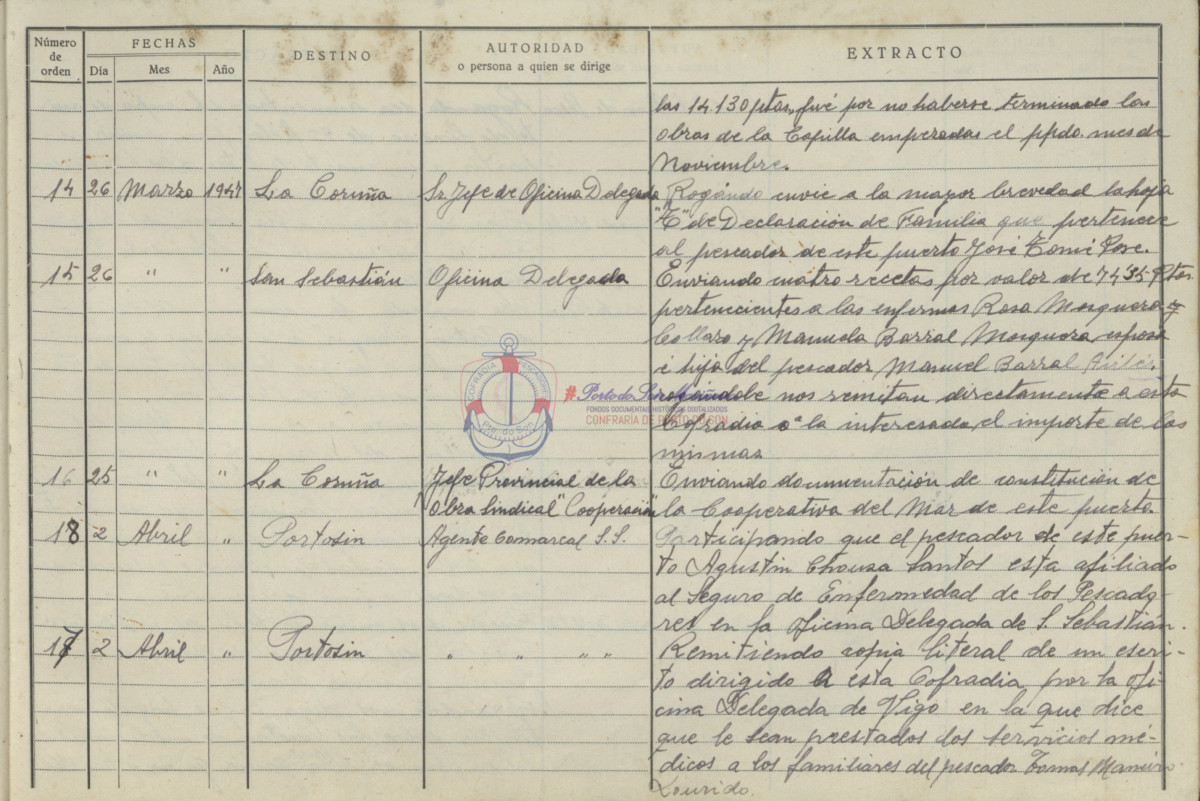 Número de orden
FECHAS
Día Mes Año
DESTINO
AUTORIDAD
o persona a quien se dirige
EXTRACTO
las 14.130 ptas, fué por no haberse terminado las
obras de la Capilla empezadas el ppdo. mes de
Noviembre.
14 26 Marzo 1947 La Coruña Sr. Jefe de Oficina Delegada Rogándo envie a la mayor brevedad la hoja
de Declaración de Familia que pertenece
al pescador de este puerto José Tomé Pose.
15 26 " " San Sebastián Oficina Delegada Enviando cuatro recetas por valor de 74'35 Ptas.
pertenecientes a las enfermas Rosa Mosquera
Collazo y Manuela Barral Mosquera, esposa
é hija del pescador Manuel Barral
nos remitan directamente a esta
Cofradia o a la interesada, el importe de las
mismas
16 25 " " La Coruña Jefe Provincial de la Enviando documentación de constitución de
Obra Sindical "Cooperación" la Cooperativa del Mar de este puerto.
18 2 Abril " Portosin Agente Comarcal S.S. Participando que el pescador de este puer-
to Agustin Chouza Santos esta afiliado
al Seguro de Enfermedad de los Pescado-
res en la oficina Delegada de S. Sebastián.
17 2 Abril " Portosin " " " " Remitiendo copia literal de un escri-
to dirigido a esta Cofradia por la ofi-
cina Delegada de Vigo en la que dice
que le sean prestados los servicios mé-
dicos a los familiares del pescador Tomas Maneiro
Lourido.
COFRADIA PESCADORES
Pto. do Son
FONDOS DOCUMENTAIS HISTÓRICOS DIGITALIZADOS
CONFRARÍA DE PORTO DO SON